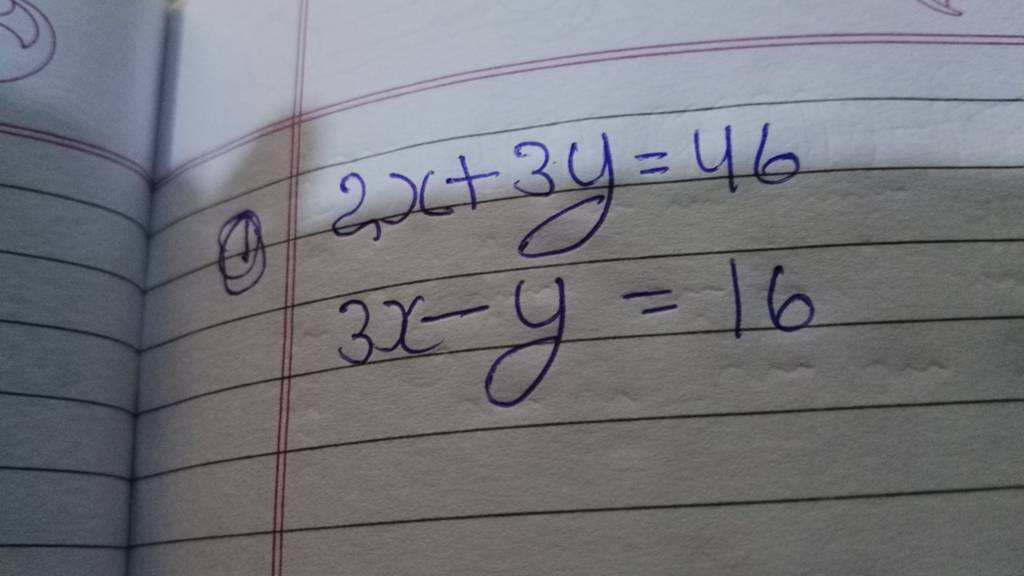 ① 2x + 3y = 46
3x - y = 16